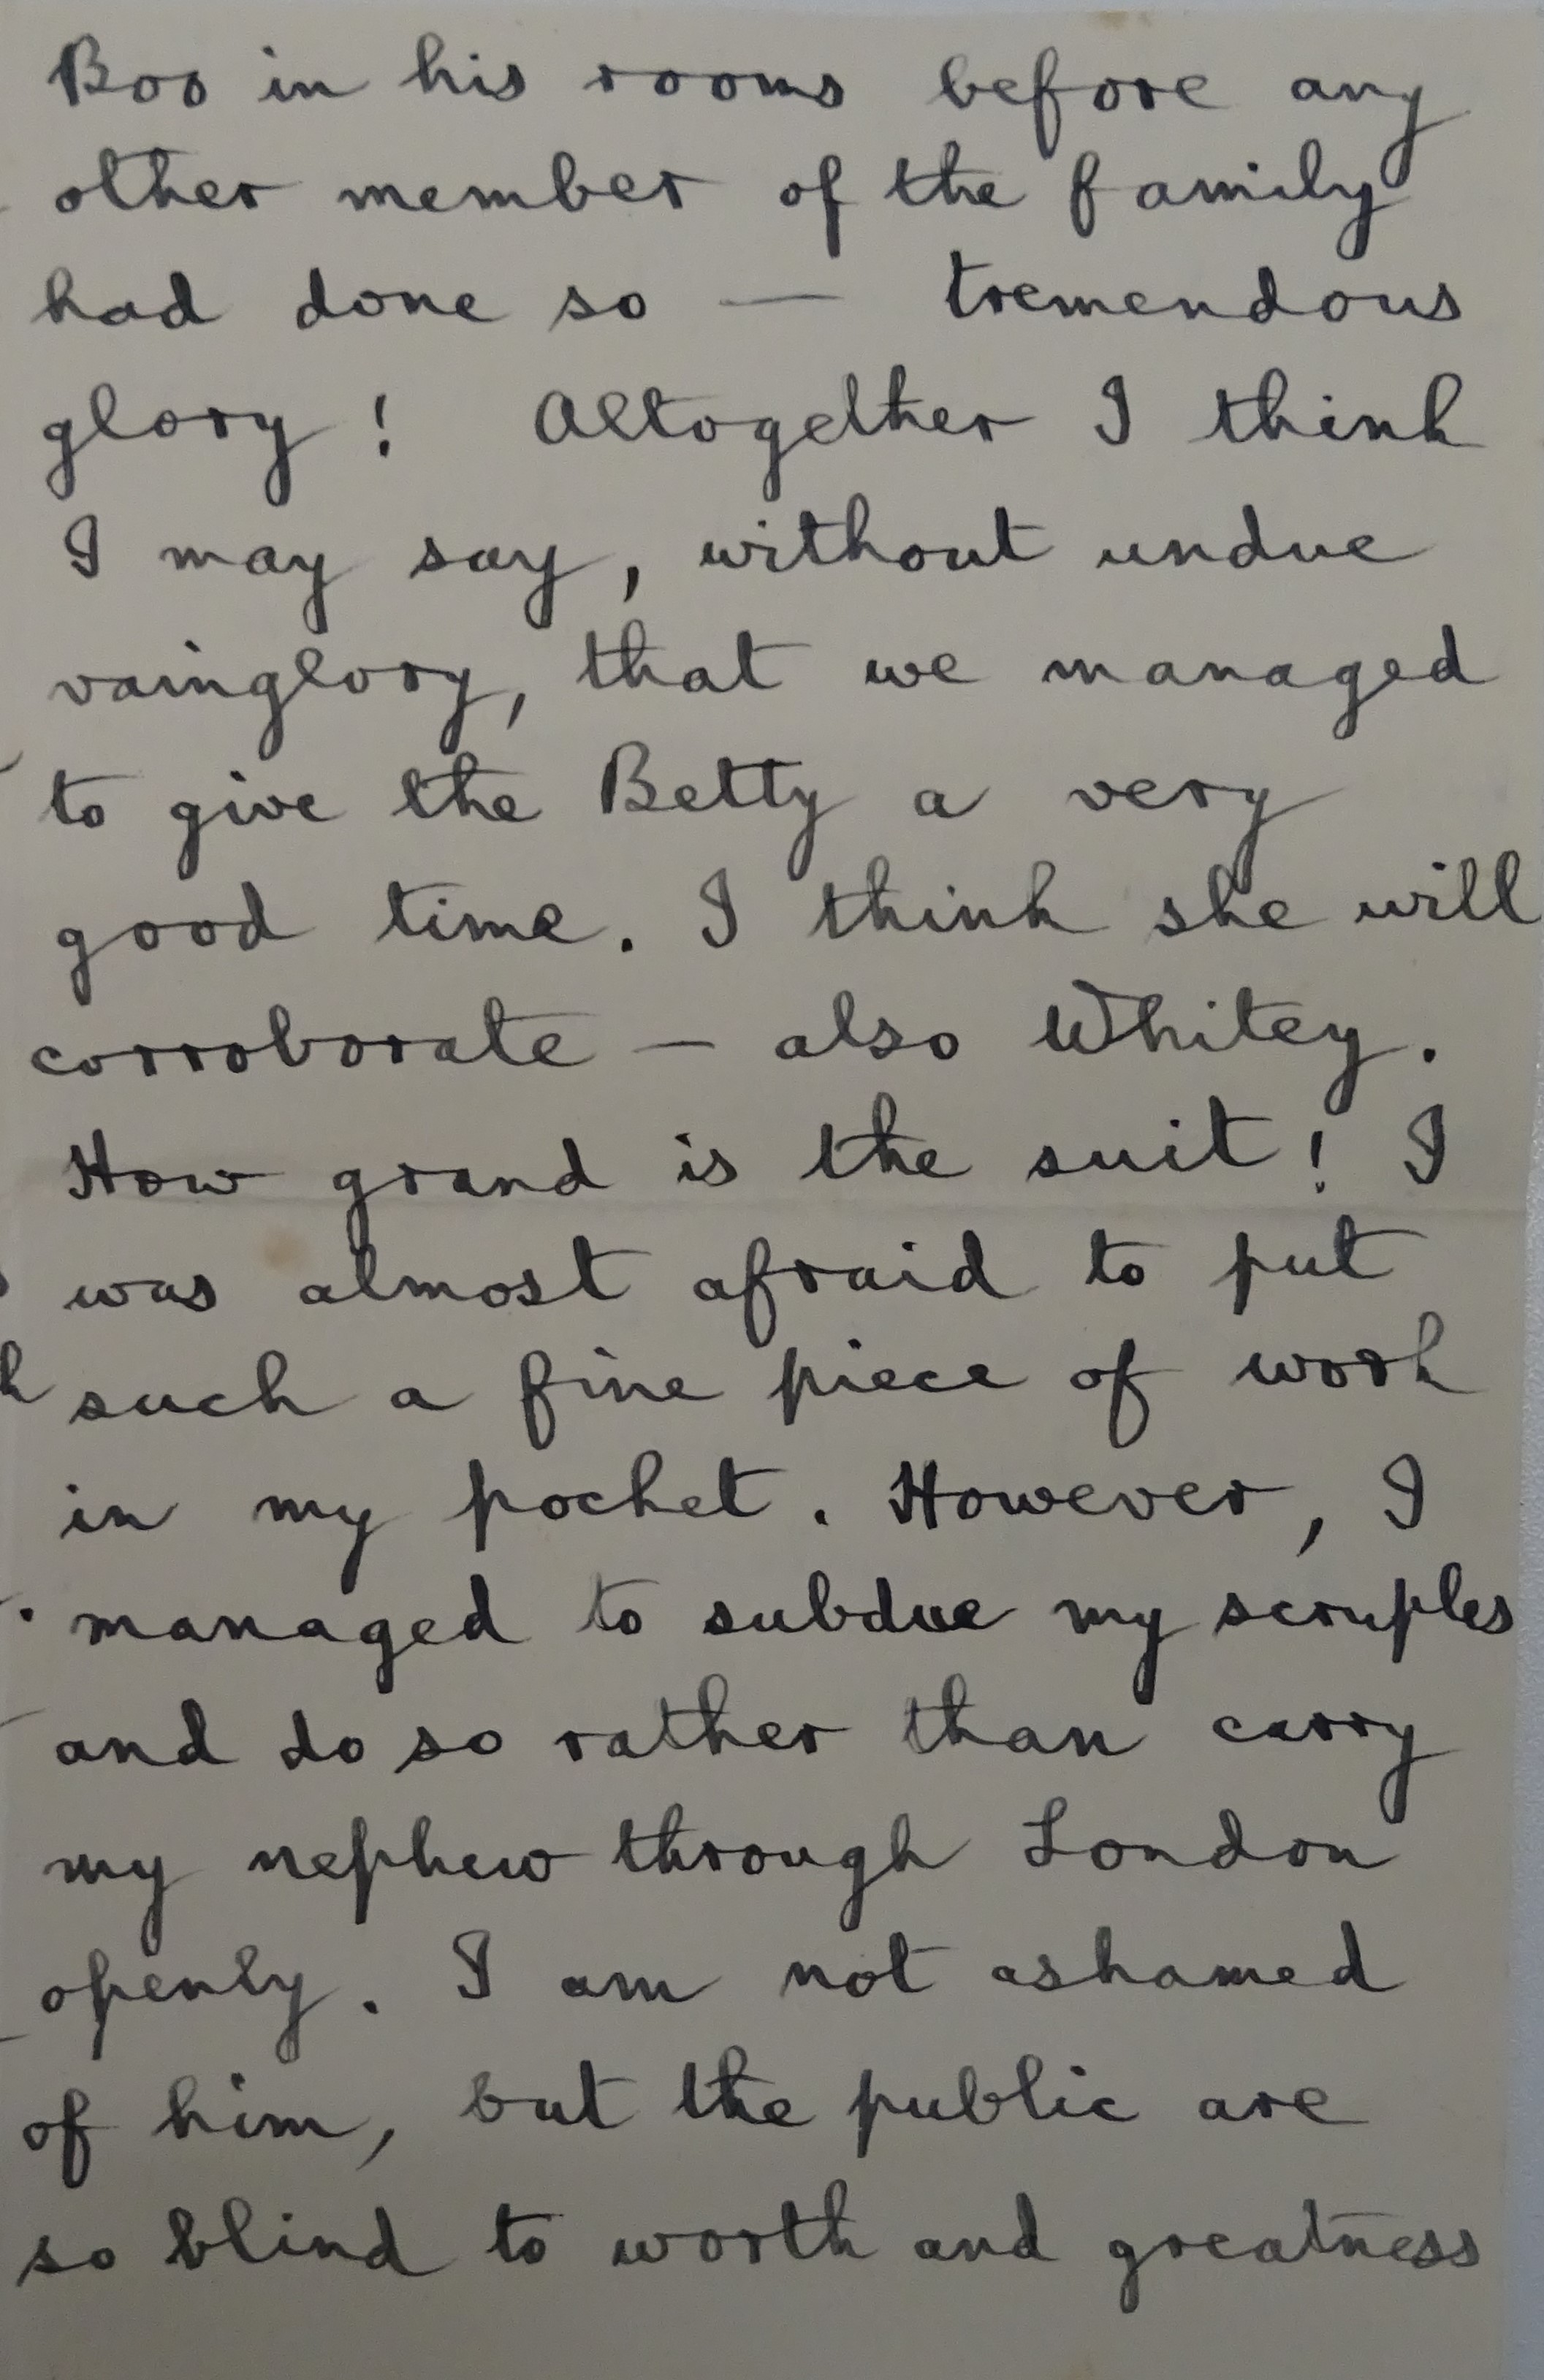 Boo in his rooms before any
other member of the family
had done so — tremendous
glory! Altogether I think
I may say, without undue
vainglory, that we managed
to give the Betty a very
good time. I think she will
corroborate — also Whitey.
How grand is the suit! I
was almost afraid to put
such a fine piece of work
in my pocket. However, I
managed to subdue my scruples
and do so rather than carry
my nephew through London
openly. I am not ashamed
of him, but the public are
so blind to worth and greatness